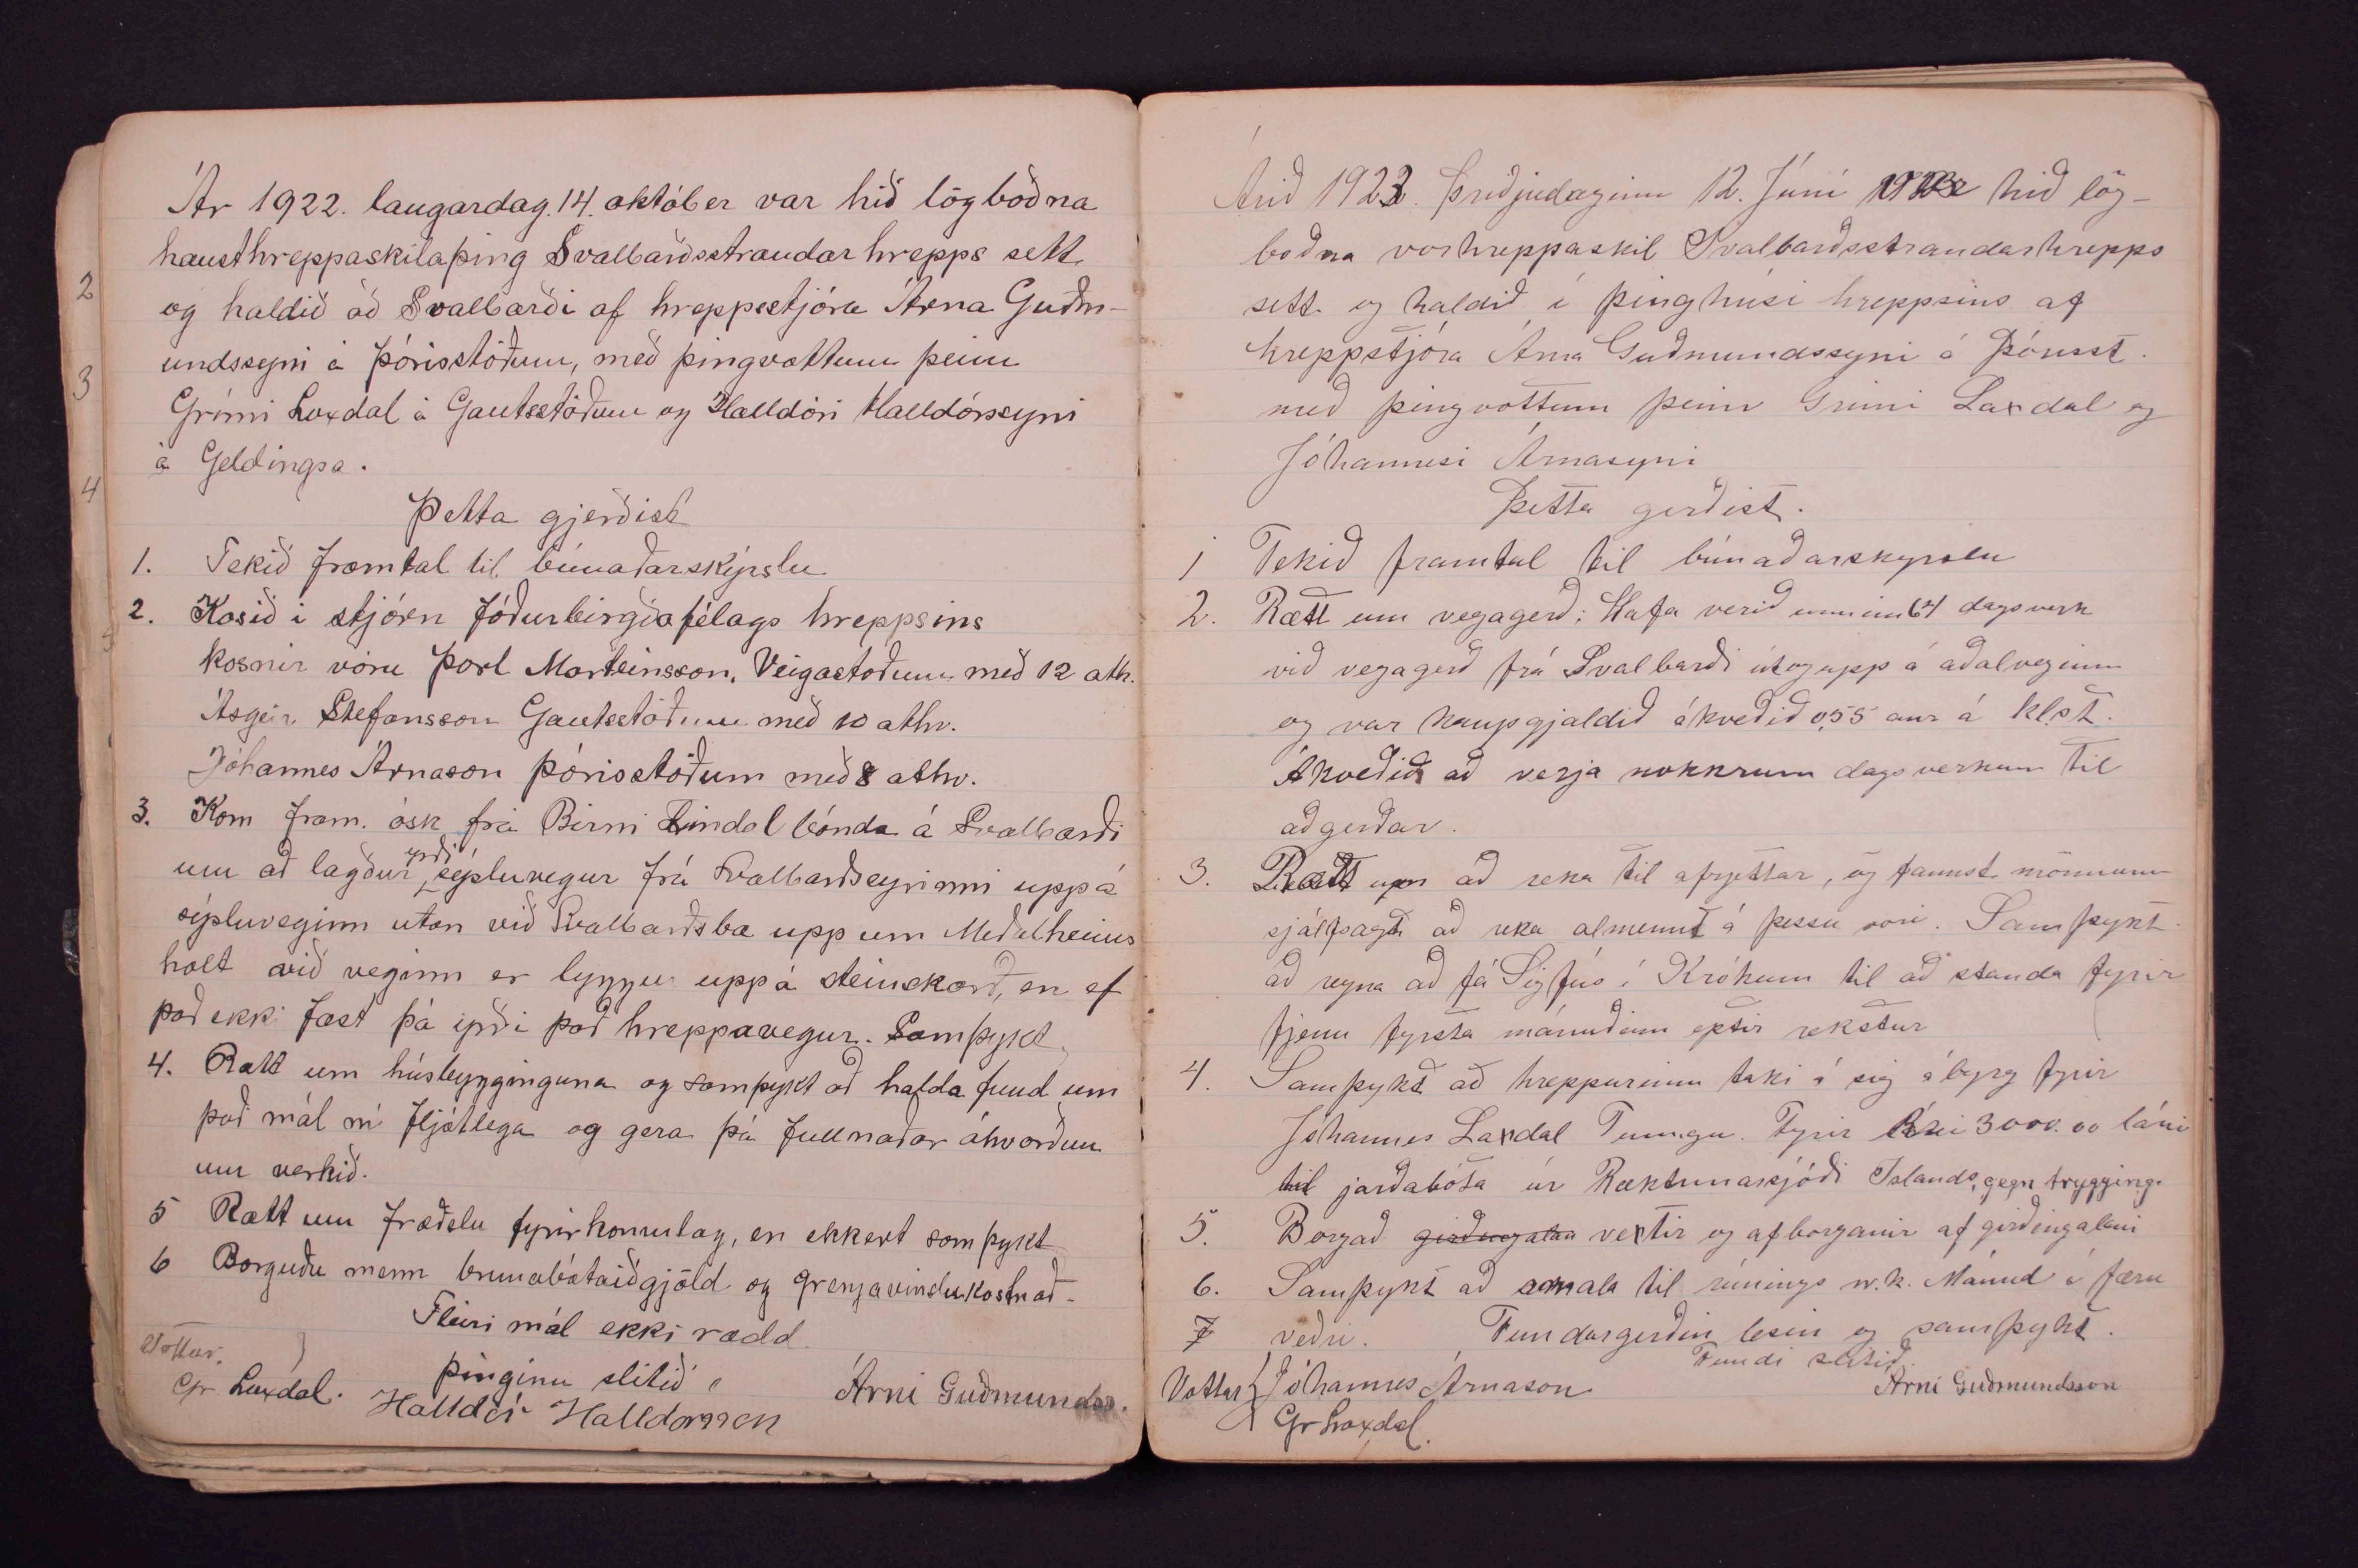 Ár 1922. laugardag. 14. október var hið lögboðna
hausthreppaskilaþing Svalbarðsstrandarhrepps sett
og haldið að Svalbarði af hreppsstjóra Árna Guðm-
undssyni á Þórisstöðum, með þingvottum þeim
Grími Laxdal á Gautsstöðum og Halldóri Halldórssyni
á Geldingsá.
Þetta gjerðist
1. Tekið framtal til búnaðarskýrslu
2. Kosið í stjórn fóðurbirgðafélags hreppsins
kosnir vóru Þorl Marteinsson, Veigastöðum með 12 atk.
Ásgeir Stefansson Gautsstöðum með 10 atkv.
Jóhannes Árnason Þórisstöðum með 8 atkv.
3. Kom fram. ósk frá Birni Líndal bónda á Svalbarði
um að lagður yrði sýsluvegur frá Svalbarðseyrinni upp á
sýsluveginn utan við Svalbarðsbæ upp um Meðalheims
holt við veginn er liggur upp á steinskarð, en ef
það ekki fæst þá yrði það hreppavegur. Samþykt.
4. Rætt um húsbygginguna og samþykt að halda fund um
það mál nú fljótlega og gera þá fullnaðar ákvörðun
um verkið.
5 Rætt um fræðslu fyrirkomulag, en ekkert samþykt
6 Borguðu menn brunabótaiðgjöld og grenjavinslukostnað.
Fleiri mál ekki rædd
þinginu slitið
Vottar.
Gr Laxdal. Halldór Halldórsson Árni Guðmundss.
2
3
4
5
Árið 1923. Þriðjudaginn 12. Júní hið lög-
boðna vorhreppaskil Svalbarðsstrandarhrepps
sett og haldið í þinghúsi hreppsins af
hreppstjóra Árna Guðmundssyni á Þórisst.
með þingvottum þeim Grími Laxdal og
Jóhannesi Árnasyni
Þetta gerðist.
1 Tekið framtal til búnaðarskyrslu
2. Rætt um vegagerð: Hafa verið unnin 64 dagsverk
við vegagerð frá Svalbarði út og upp á aðalveginn
og var kaupgjaldið ákveðið 0,55 aur á klst.
Ákveðið að verja nokkrum dagsverkum til
aðgerðar.
3. Rætt um að reka til afrjettar, og fannst mönnum
sjálfsagt að reka almennt á þessu vori. Samþykt
að reyna að fá Sigfús í Krókum til að standa fyrir
fjenu fyrsta mánuðinn eptir rekstur
4. Samþykt að hreppurinn taki á sig ábyrg fyrir
Jóhannes Laxdal Tungu. Fyrir 3000.00 láni
til jarðabóta úr Ræktunarsjóði Islands, gegn trygging.
5. Borgað girðingalán vextir og afborganir af girðingaláni
6. Samþykt að smala til rúnings n.k. Mánud í færu
7 veðri. Fundargerðin lesin og samþykt.
Fundi slitið
Vottar Jóhannes Árnason Árni Guðmundsson
Gr Laxdal.